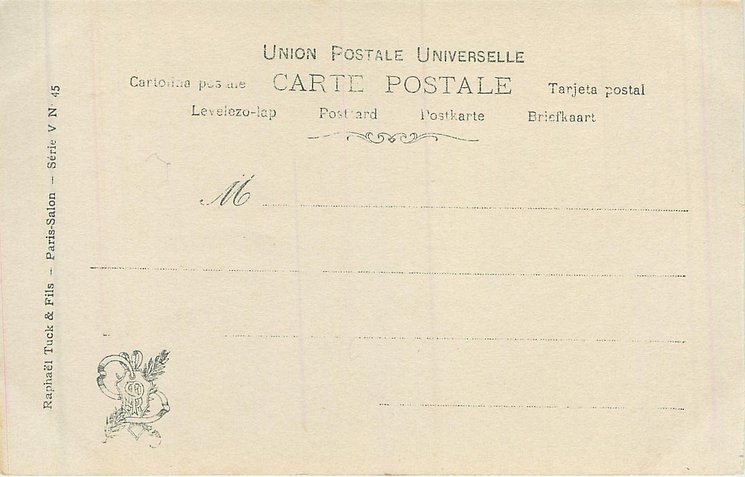 UNION POSTALE UNIVERSELLE
Cartolina postale CARTE POSTALE Tarjeta postal
Levelezo-lap Postcard Postkarte Briefkaart
M
Raphaël Tuck & Fils – Paris-Salon – Série V N° 45